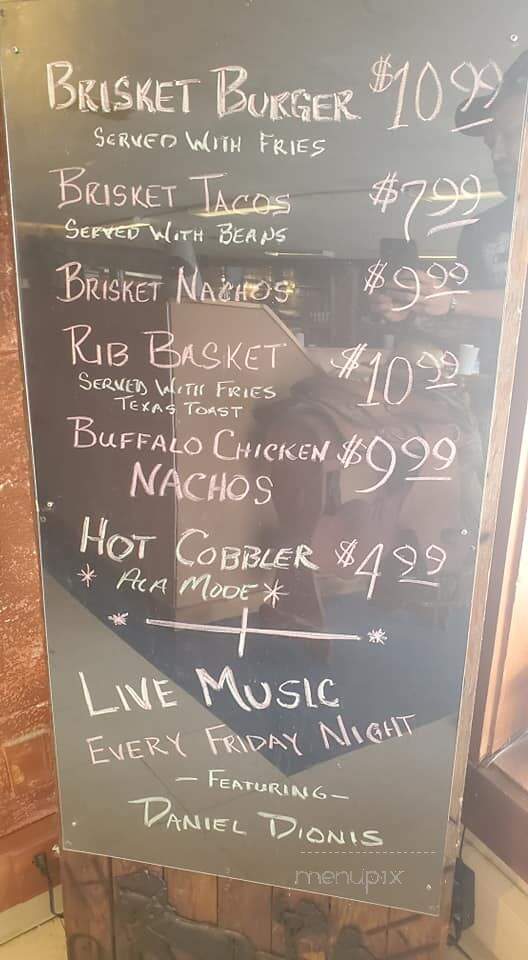 BRISKET BURGER $10.99
SERVED WITH FRIES
BRISKET TACOS $7.99
SERVED WITH BEANS
BRISKET NACHOS $9.99
RIB BASKET $10.99
SERVED WITH FRIES
TEXAS TOAST
BUFFALO CHICKEN $9.99
NACHOS
HOT COBBLER $4.99
* ALA MODE *
LIVE MUSIC
EVERY FRIDAY NIGHT
- FEATURING -
DANIEL DIONIS
menupix